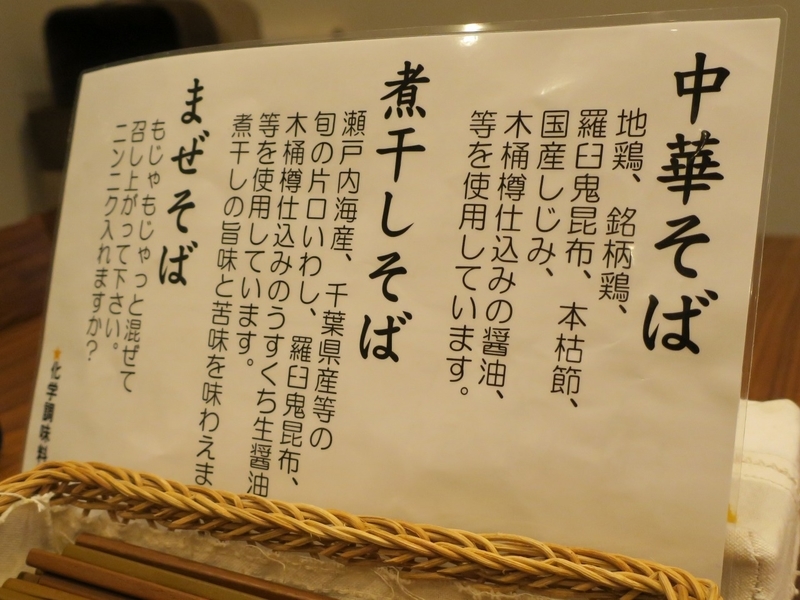 中華そば
地鶏、銘柄鶏、
羅臼鬼昆布、本枯節、
国産しじみ、
木桶樽仕込みの醤油、
等を使用しています。
煮干しそば
瀬戸内海産、千葉県産等の
旬の片口いわし、羅臼鬼昆布、
木桶樽仕込みのうすくち生醤油
等を使用しています。
煮干しの旨味と苦味を味わえま
まぜそば
もじゃもじゃっと混ぜて
召し上がって下さい。
ニンニク入れますか？
★化学調味料